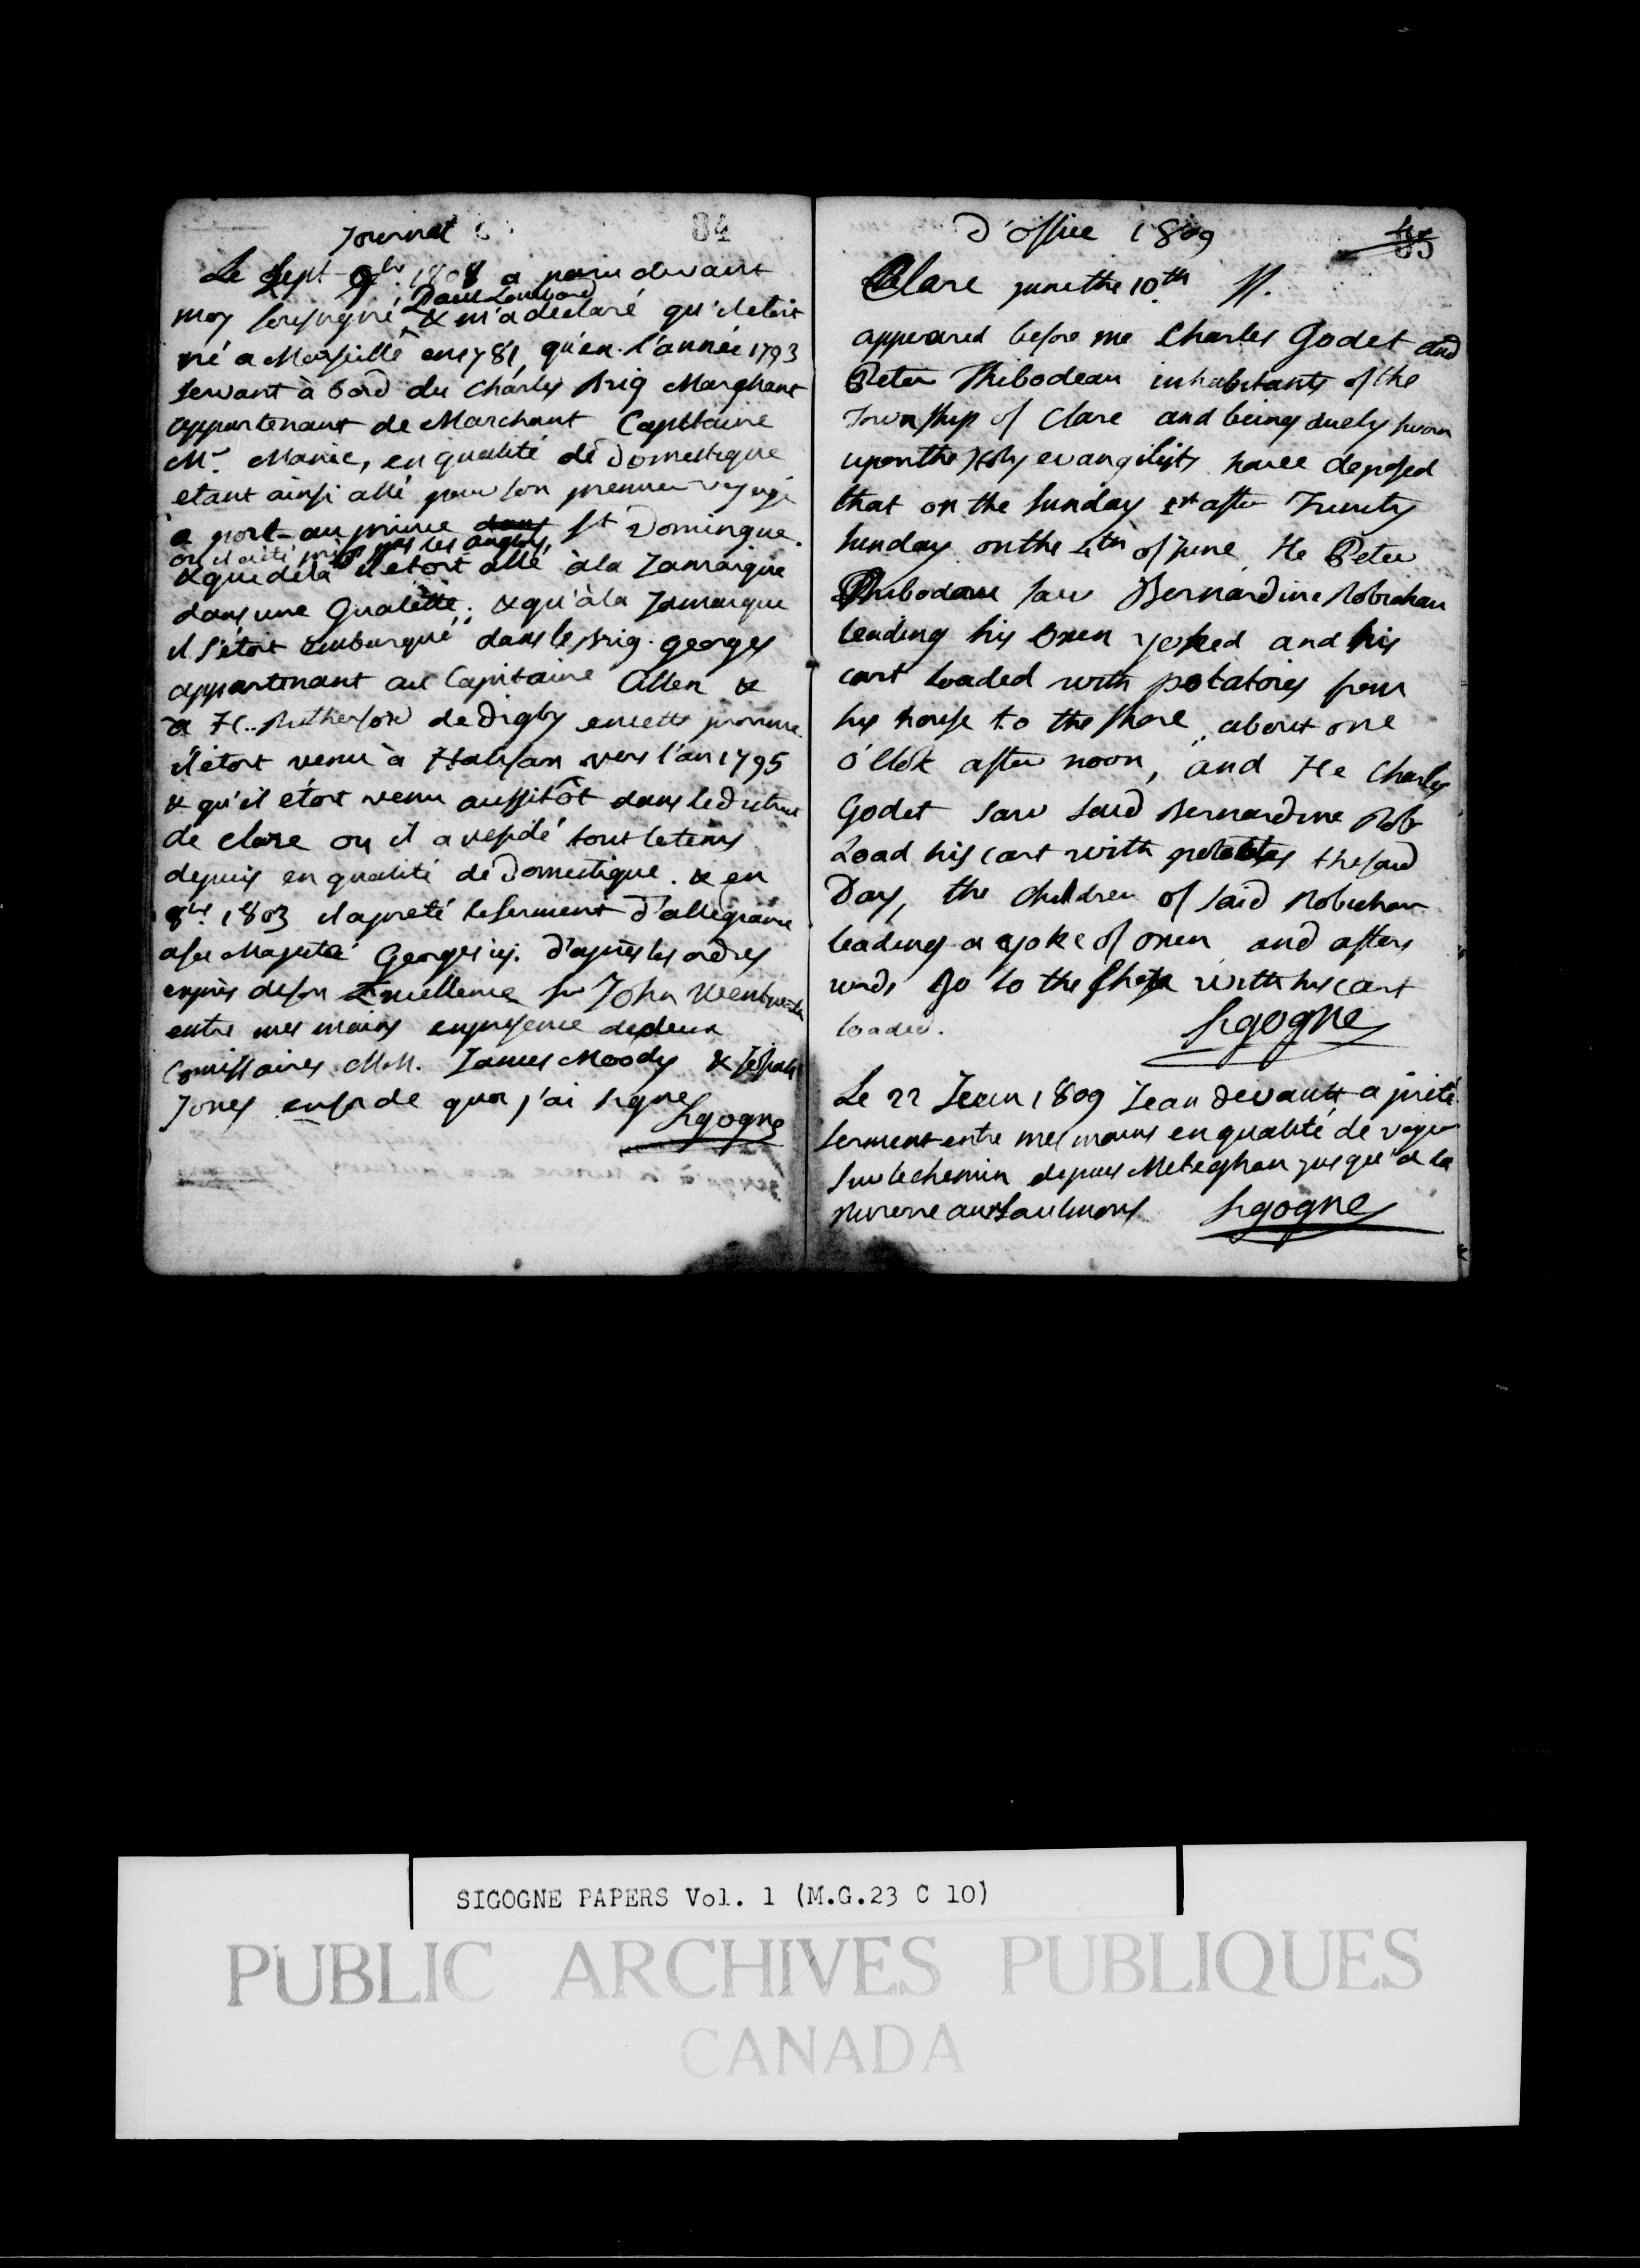 Journal
84
Le Sept 9br. 1808 a paru devant
moy soussigné Paul Lombard & m'a declaré qu'il etoit
né a Marseille en 1781, qu'en l'année 1793
servant à bord du Charles Brig Marchant
appartenant de Marchant Capitaine
Mr. Manie, en qualité de Domestique
etant ainsi allé pour son premier voyage
a port-au prince dans St Domingue.
ou il a été pris par les anglois,
& que de là il etoit allé à la Jamaique
dans une Gualette; & qu'à la Jamaique
il s'étoit embarqué dans le Brig. Georges
appartenant au Capitaine Allen &
a H. Rutherford de Digby en cette province
il étoit venu à Halifax vers l'an 1795
& qu'il étoit venu aussitôt dans le district
de Clare ou il a residé tout le tems
depuis en qualité de Domestique. & en
8bre 1803 il a preté le serment d'allegiance
a sa Majesté Georges iij. d'après les ordres
exprès de son Excellence Sir John Wentworth
entre mes mains en presence de deux
Comissaires M.M. James Moody &
Jones en foi de quoi j'ai signé
Sigogne
D'Office 1809
85
Clare june the 10th ss.
appeared before me Charles Godet and
Peter Thibodeau inhabitants of the
Township of Clare and being duely sworn
upon the Holy evangilists have deposed
that on the Sunday 1st after Trinity
Sunday on the 4th of June He Peter
Thibodeau saw Bernardine Robichau
leading his Oxen yoked and his
cart loaded with potatoies from
his house to the shore, about one
o'Clok after noon, and He Charles
Godet saw said Bernardine Rob
Load his cart with potatoes the said
Day, the children of said Robichau
leading a yoke of oxen and afters
wards go to the shore with his cart
loaded.
Sigogne
Le 22 Jeuin 1809 Jean Devaux a preté
serment entre mes mains en qualité de voyer
sur le chemin depuis Meteghan jusqu'à la
Riviere aux Saulmons Sigogne
SIGOGNE PAPERS Vol. 1 (M.G.23 C 10)
PUBLIC ARCHIVES PUBLIQUES
CANADA